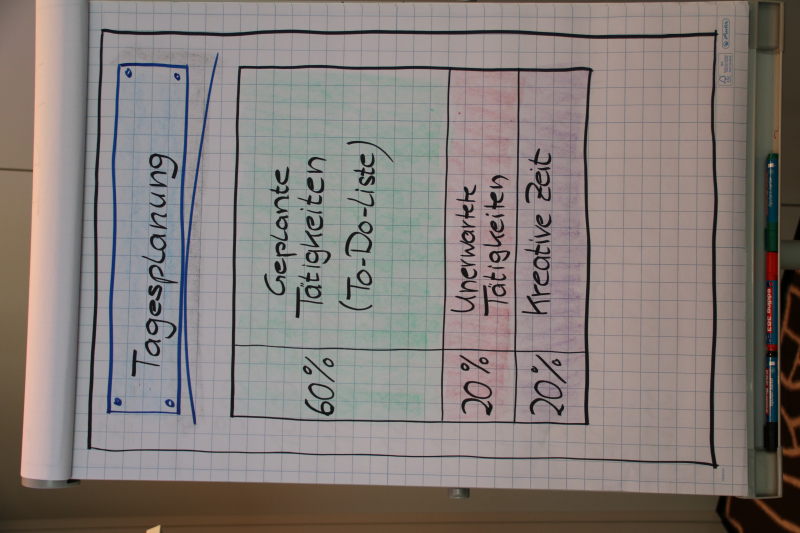 Tagesplanung
60% Geplante
Tätigkeiten
(To-Do-Liste)
20% Unerwartete
Tätigkeiten
20% Kreative Zeit